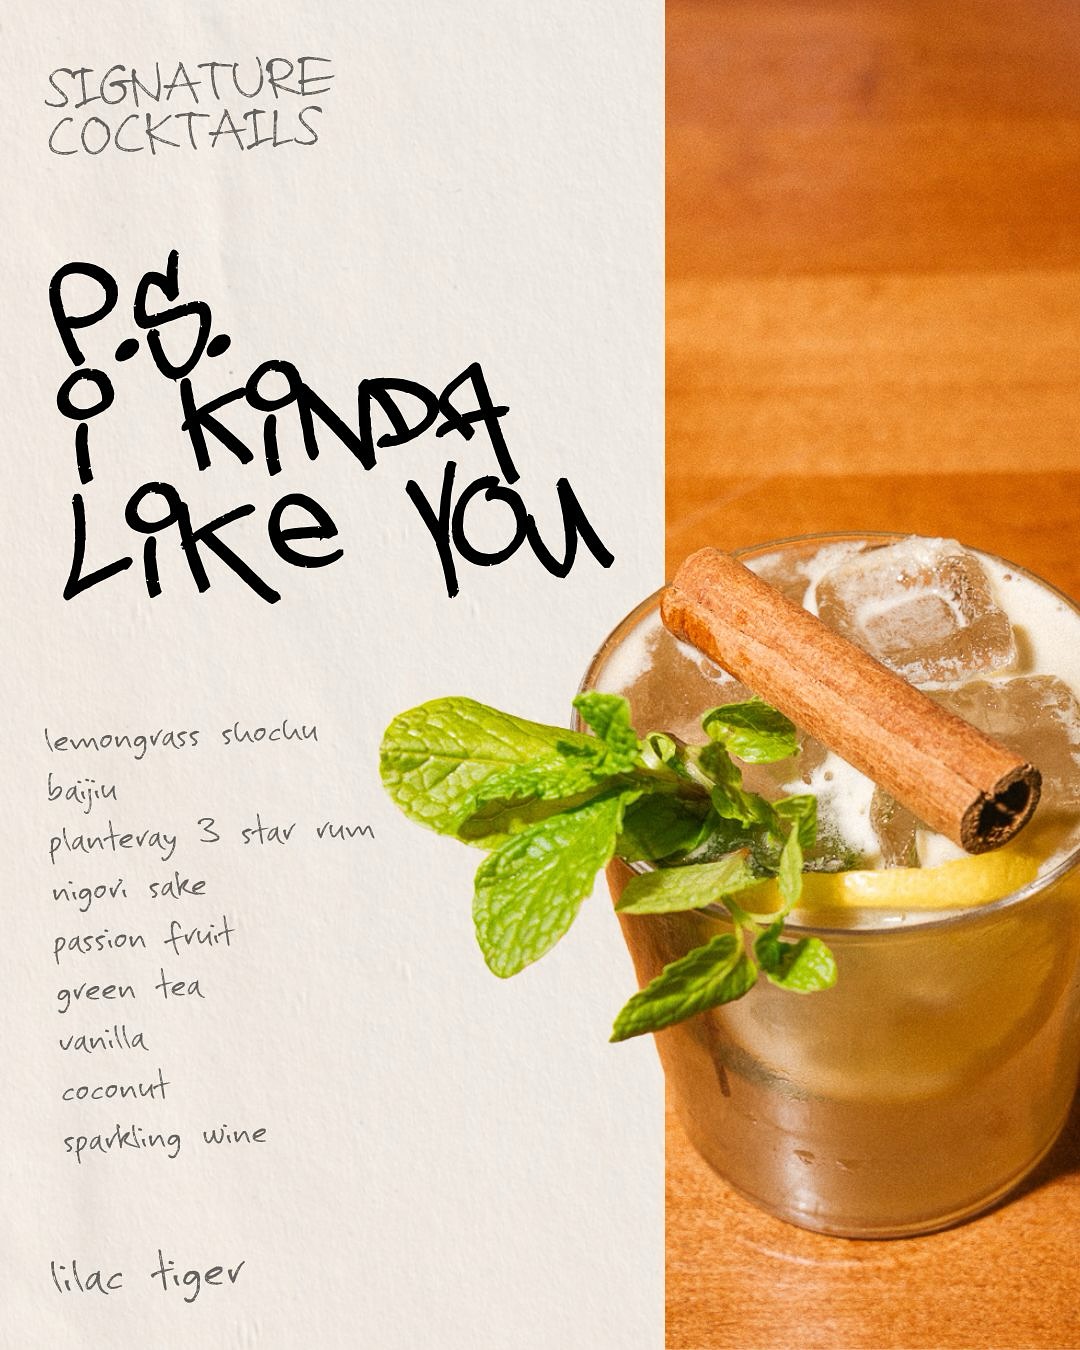 SIGNATURE
COCKTAILS
P.S.
i KiNDA
Like YOU
lemongrass shochu
baijiu
planteray 3 star rum
nigori sake
passion fruit
green tea
vanilla
coconut
sparkling wine
lilac tiger